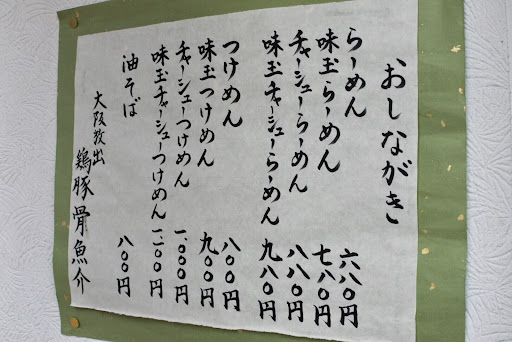 おしながき
らーめん 六八〇円
味玉らーめん 七八〇円
チャーシューらーめん 八八〇円
味玉チャーシューらーめん 九八〇円
つけめん 八〇〇円
味玉つけめん 九〇〇円
チャーシューつけめん 一、〇〇〇円
味玉チャーシューつけめん 一一〇〇円
油そば 八〇〇円
大阪救出
鶏豚骨魚介